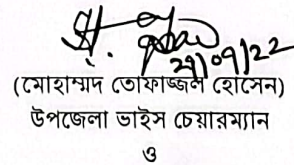 ২৭/০৭/২২
(মোহাম্মদ তোফাজ্জল হোসেন)
উপজেলা ভাইস চেয়ারম্যান
ও